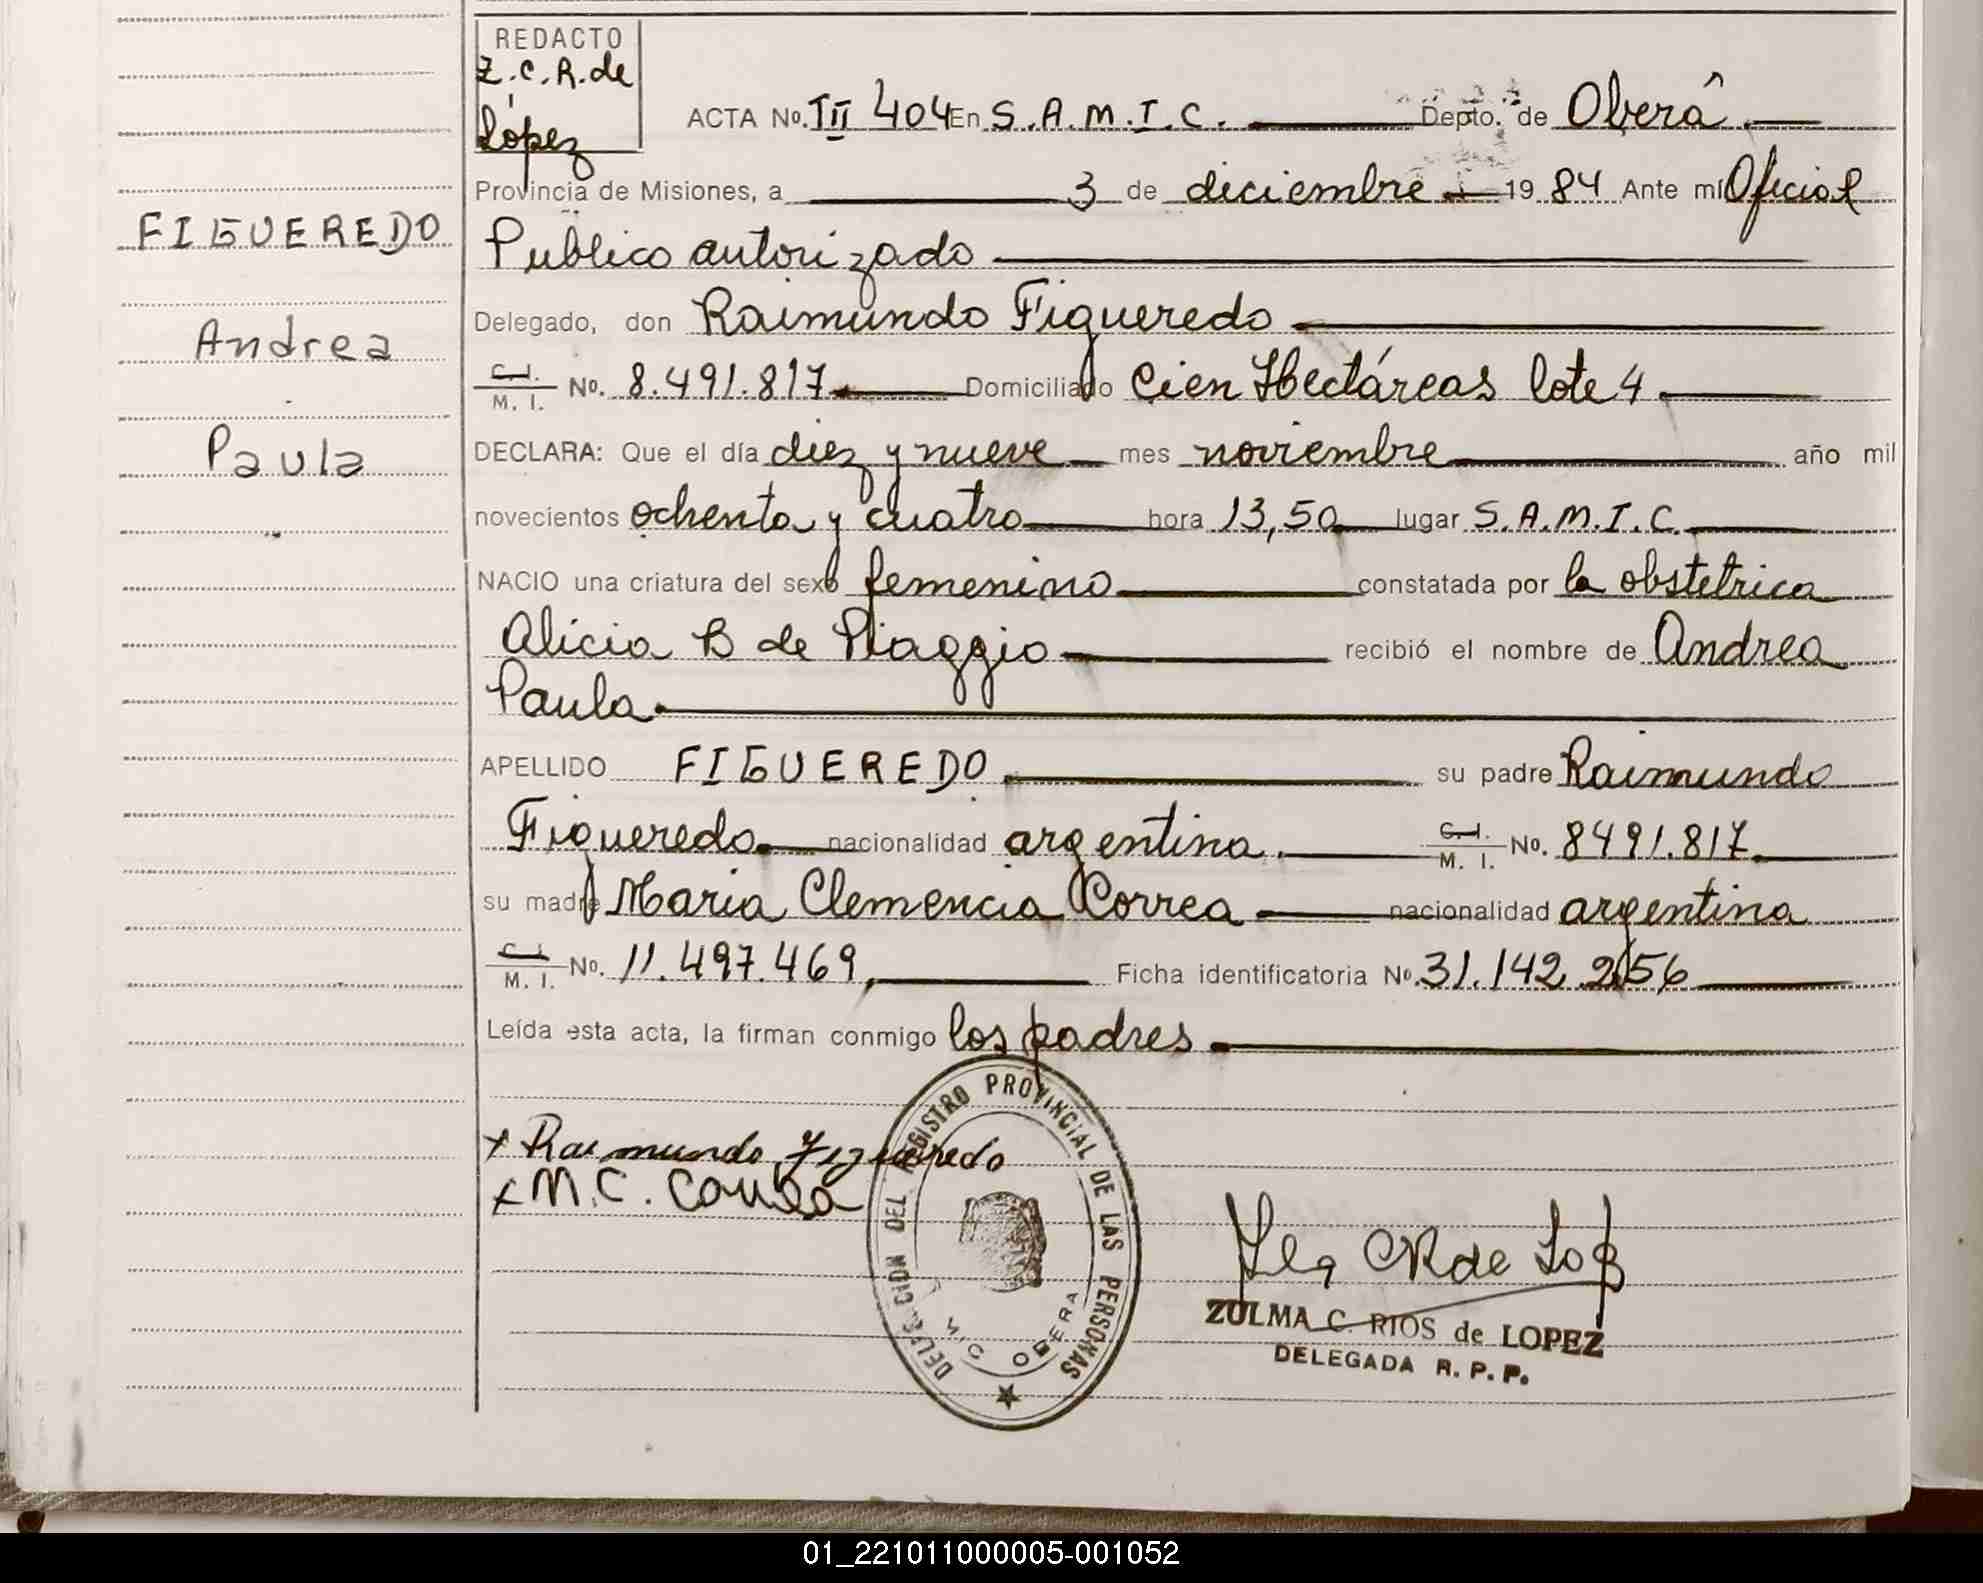 REDACTO
Z.C.R. de
López
ACTA No. III 404 En S.A.M.I.C. Depto. de Oberá
Provincia de Misiones, a 3 de diciembre 19 84 Ante mí Oficial
FIGUEREDO
Publico autorizado
Andrea
Delegado, don Raimundo Figueredo
C.I. M. I. No. 8.491.817 Domiciliado Cien Hectáreas lote 4
Paula
DECLARA: Que el día diez y nueve mes noviembre año mil
novecientos ochenta y cuatro hora 13,50 lugar S.A.M.I.C.
NACIO una criatura del sexo femenino constatada por la obstetrica
Alicia B de Piaggio recibió el nombre de Andrea
Paula
APELLIDO FIGUEREDO su padre Raimundo
Figueredo nacionalidad argentina. C.I. M. I. No. 8491.817
su madre Maria Clemencia Correa nacionalidad argentina
C.I. M. I. No. 11.497.469 Ficha identificatoria No. 31.142.256
Leída esta acta, la firman conmigo los padres
x Raimundo Figueredo
x M.C. Correa
DELEGACION DEL REGISTRO PROVINCIAL DE LAS PERSONAS
OBERA
ZULMA C. RIOS de LOPEZ
DELEGADA R. P. P.
01_221011000005-001052